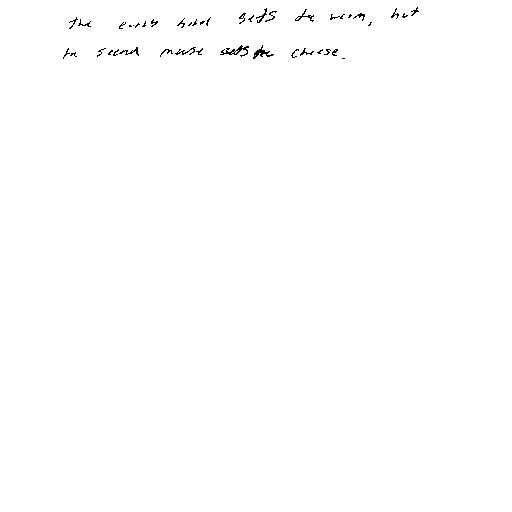 the early bird gets the worm, but
the second mouse gets the cheese.